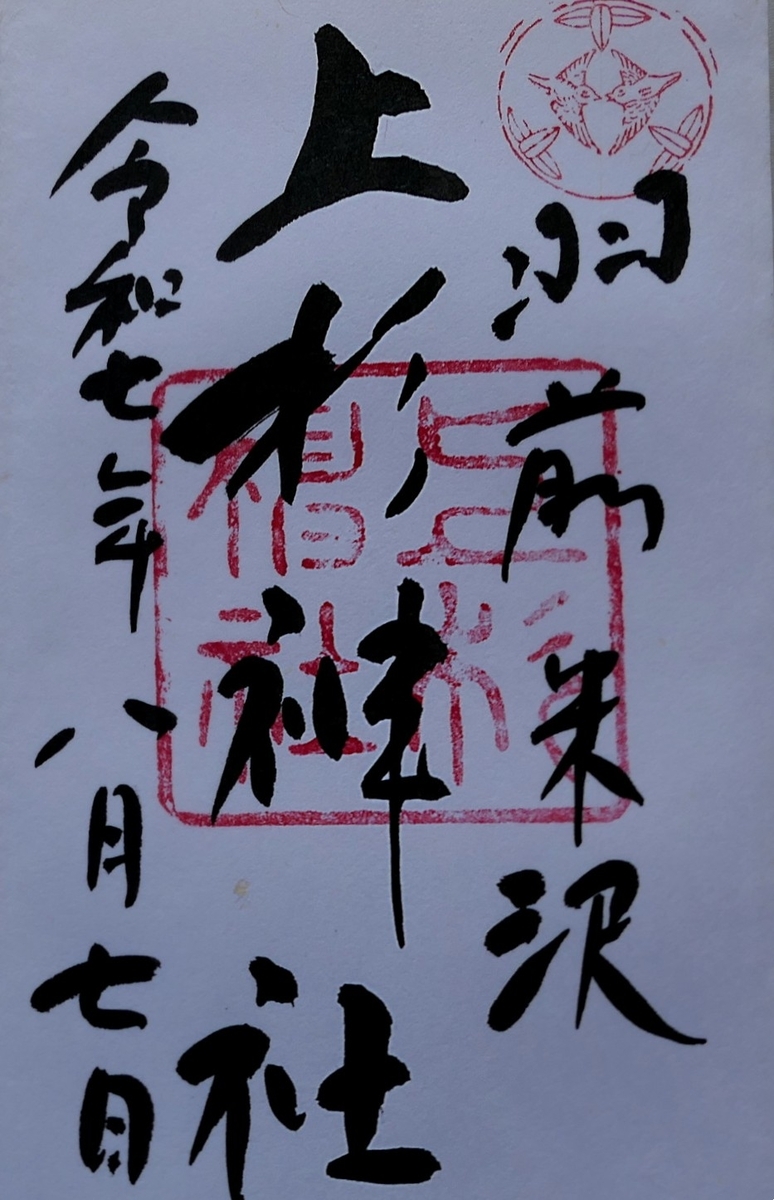 羽前米沢
上杉神社
令和七年八月七日
上杉神社